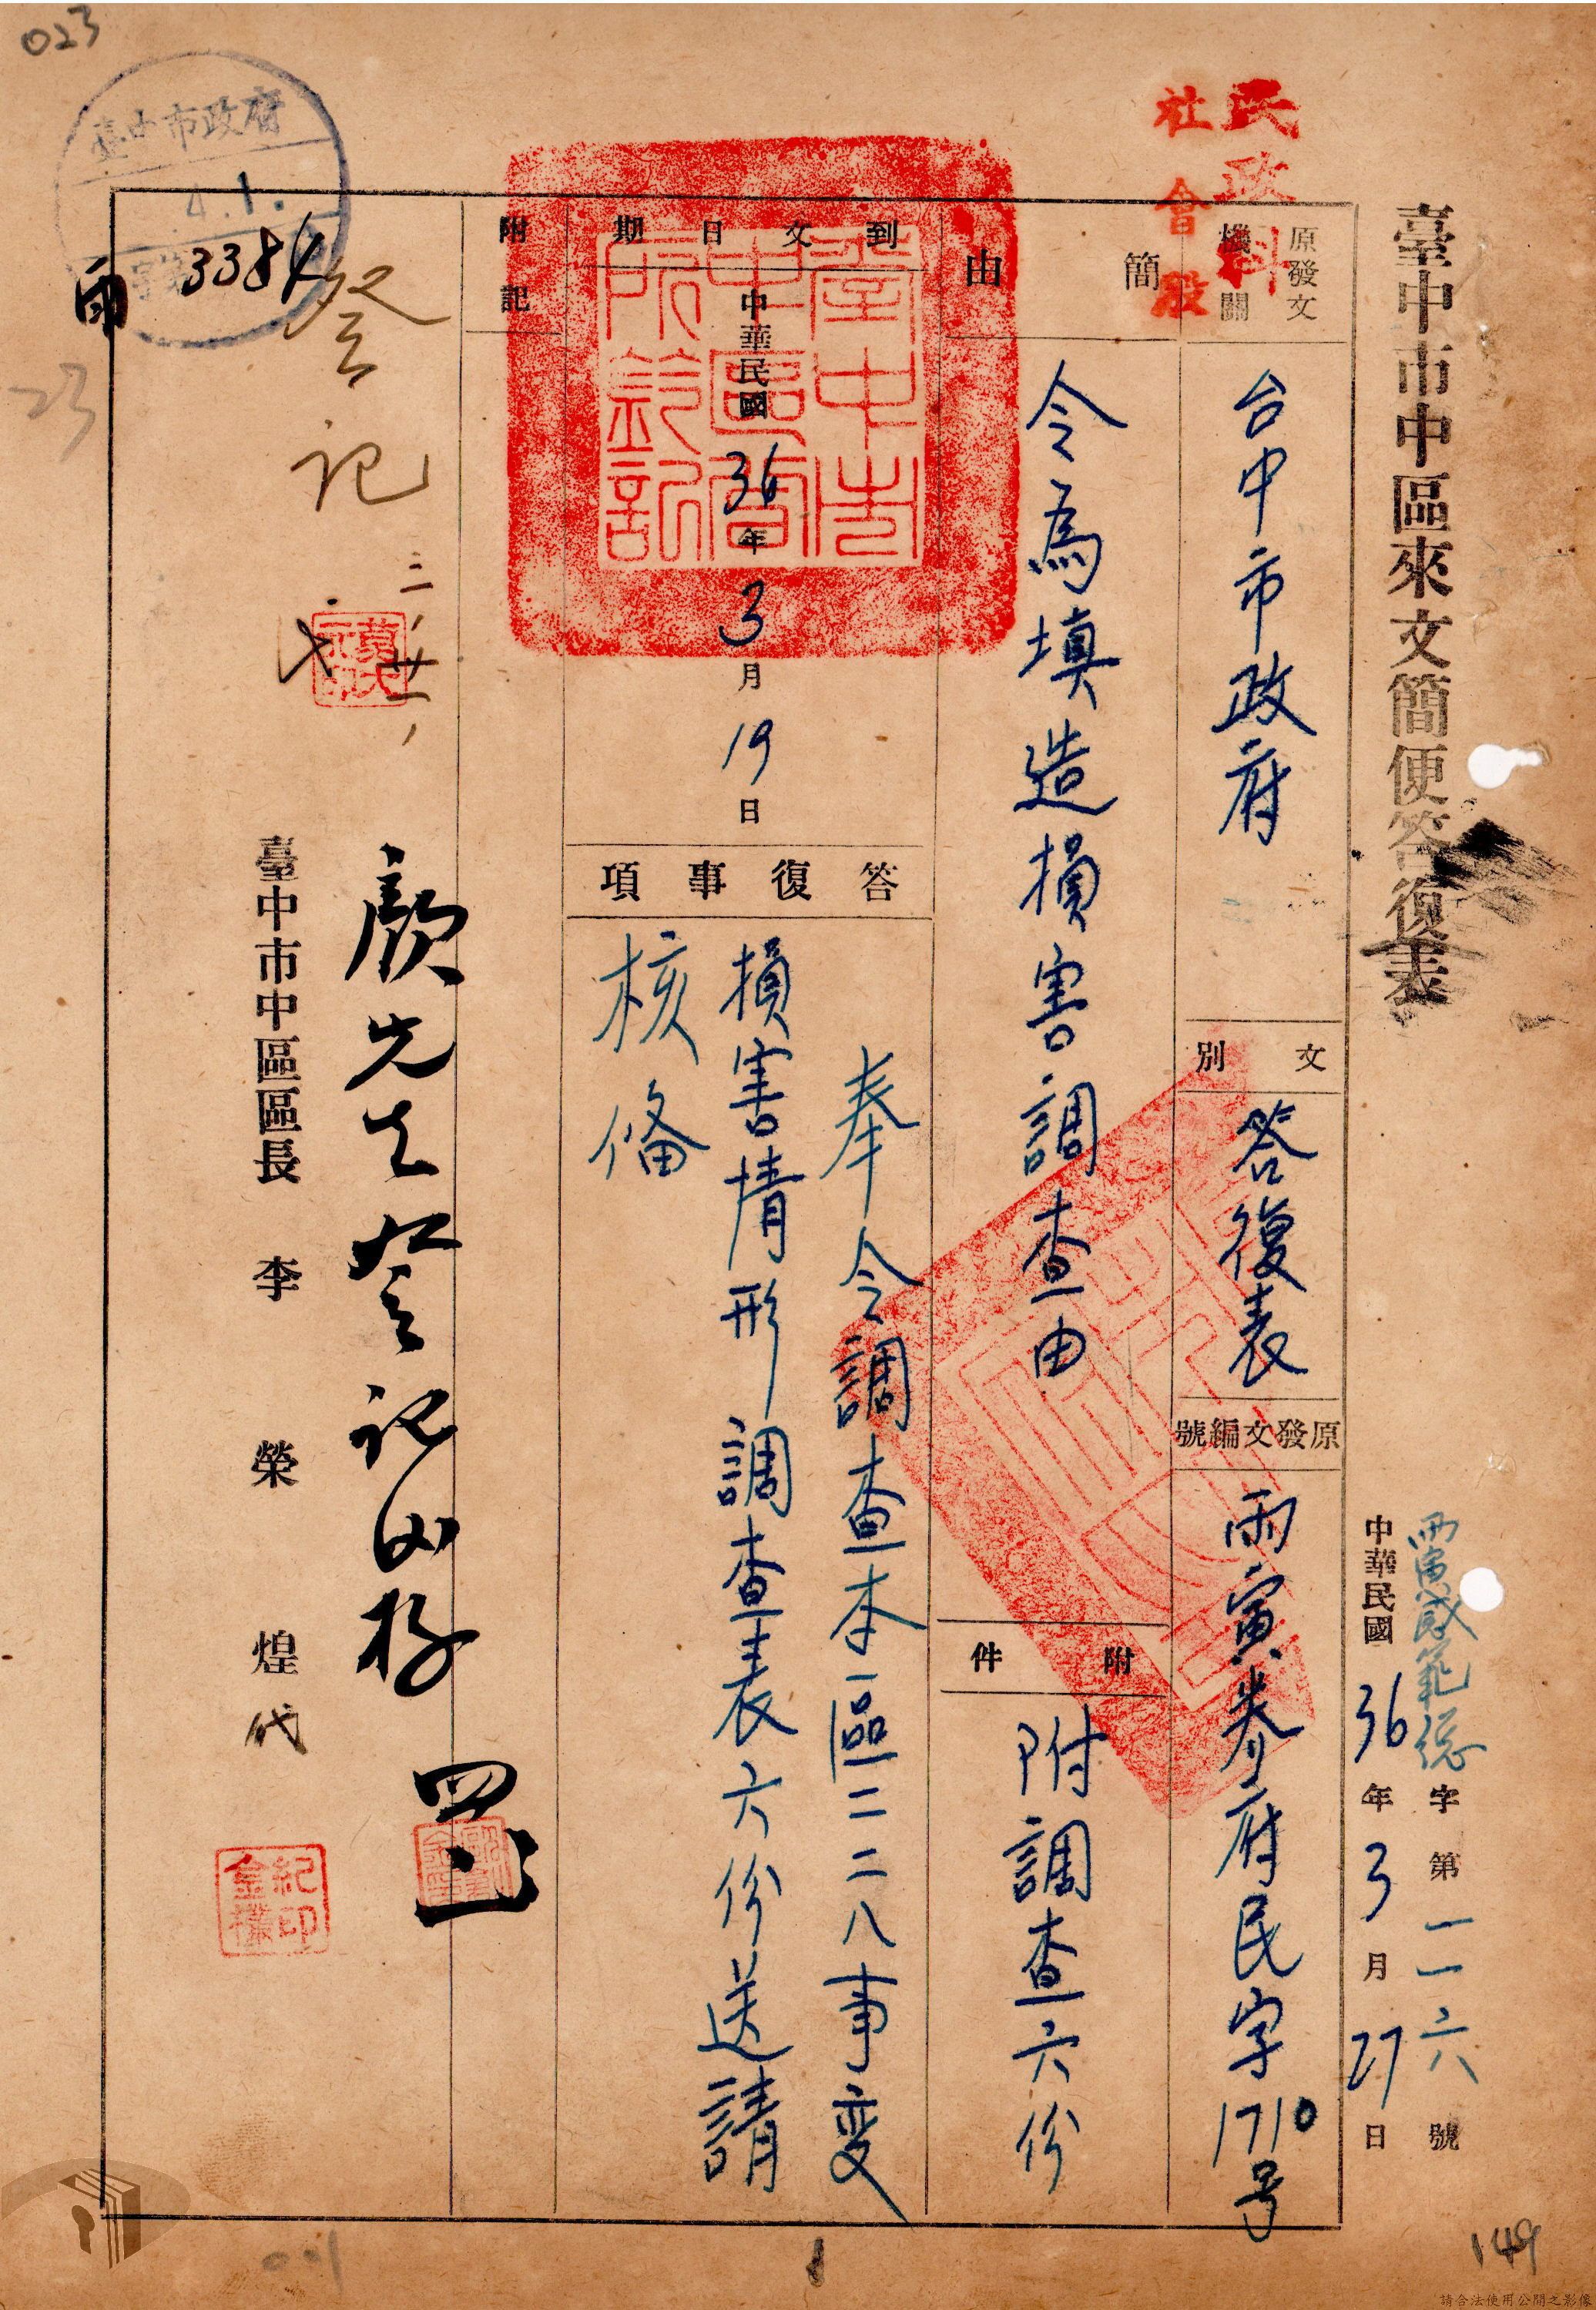 臺中市中區來文簡便答復表
寅感範総字第一一六號
中華民國36年3月27日
原發文機關
台中市政府
文別
答復表
原發文編號
寅府民字1710号
簡由
令為填造損害調查由
附件
附調查六份
到文日期
中華民國36年3月19日
答復事項
奉令調查本區二二八事変
損害情形調查表六份送請
核俻
附記
顏先生登記
登記
三、廿一、
臺中市中區區長 李榮煌代
民政科
社會股
臺中市中區公所鈐記
紀金樸印
臺中市政府
4.1.
字
3384
023
23
149
001
1
請合法使用公開之影像